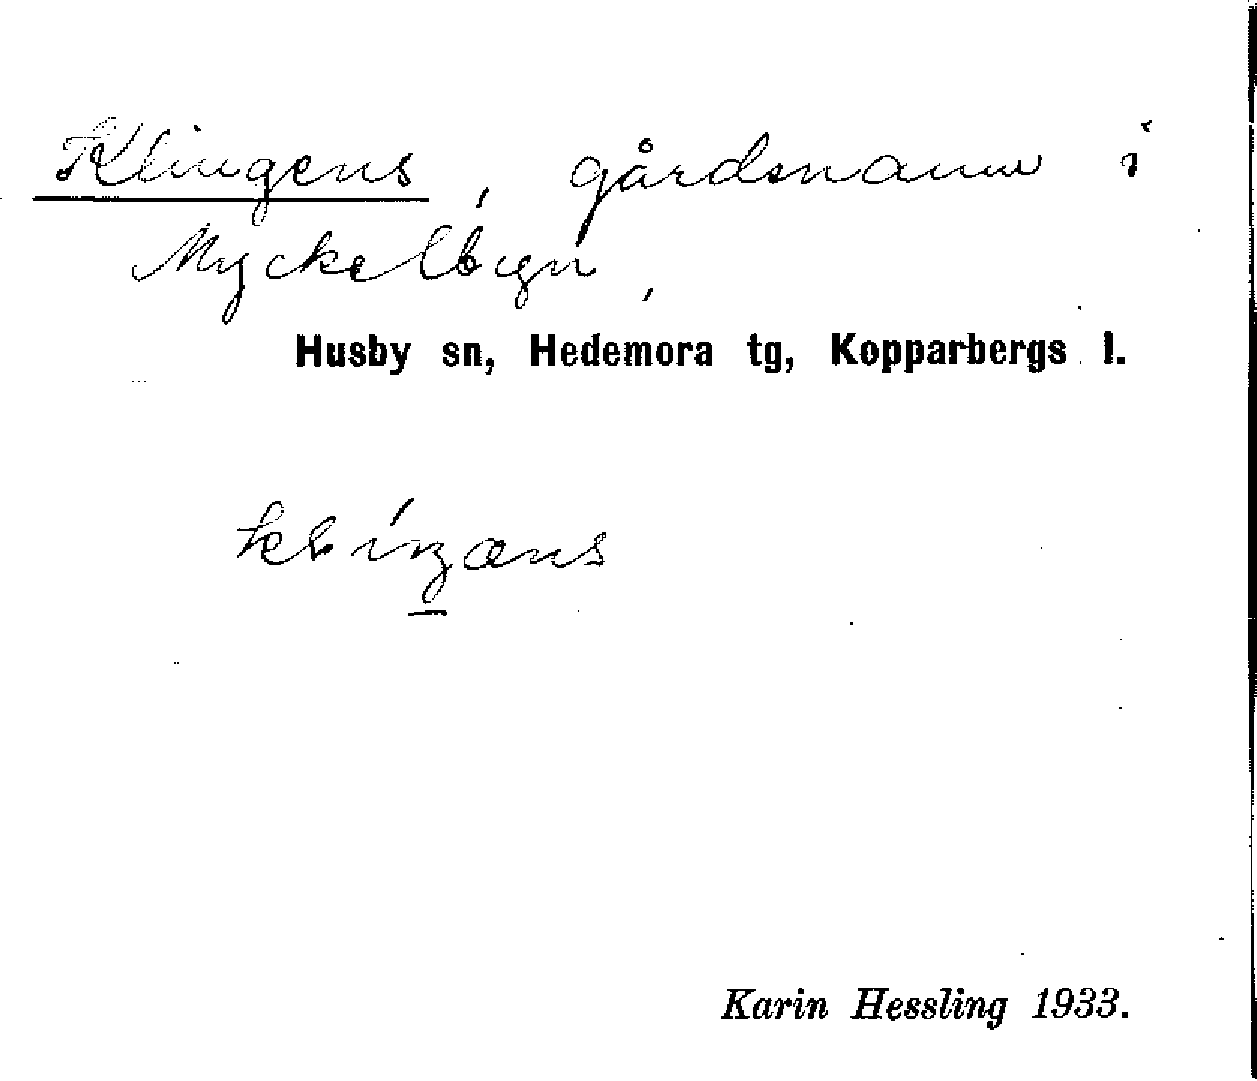 Klingens, gårdsnamn i
Myckelbyn,
Husby sn, Hedemora tg, Kopparbergs l.
Karin Hessling 1933.